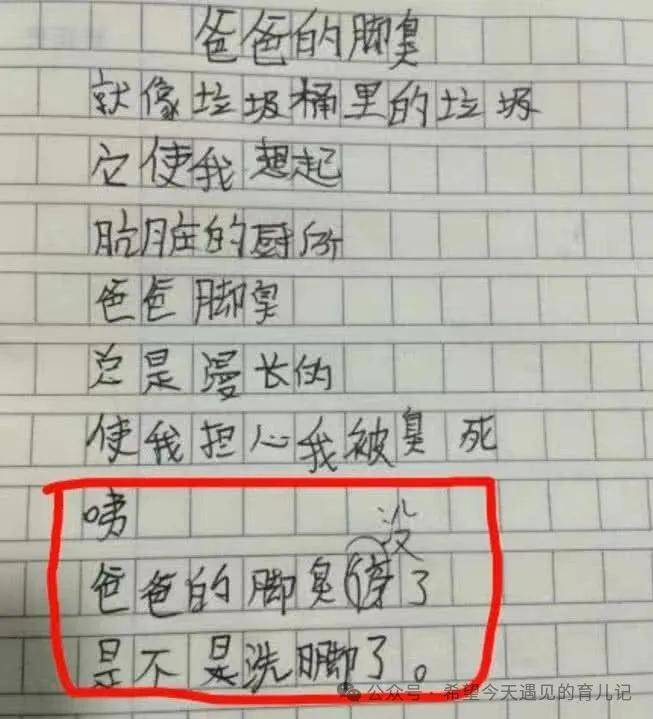 爸爸的脚臭
就像垃圾桶里的垃圾
它使我想起
肮脏的厨所
爸爸脚臭
总是漫长的
使我担心我被臭死
咦
没
爸爸的脚臭停了
是不是洗脚了。
公众号·希望今天遇见的育儿记